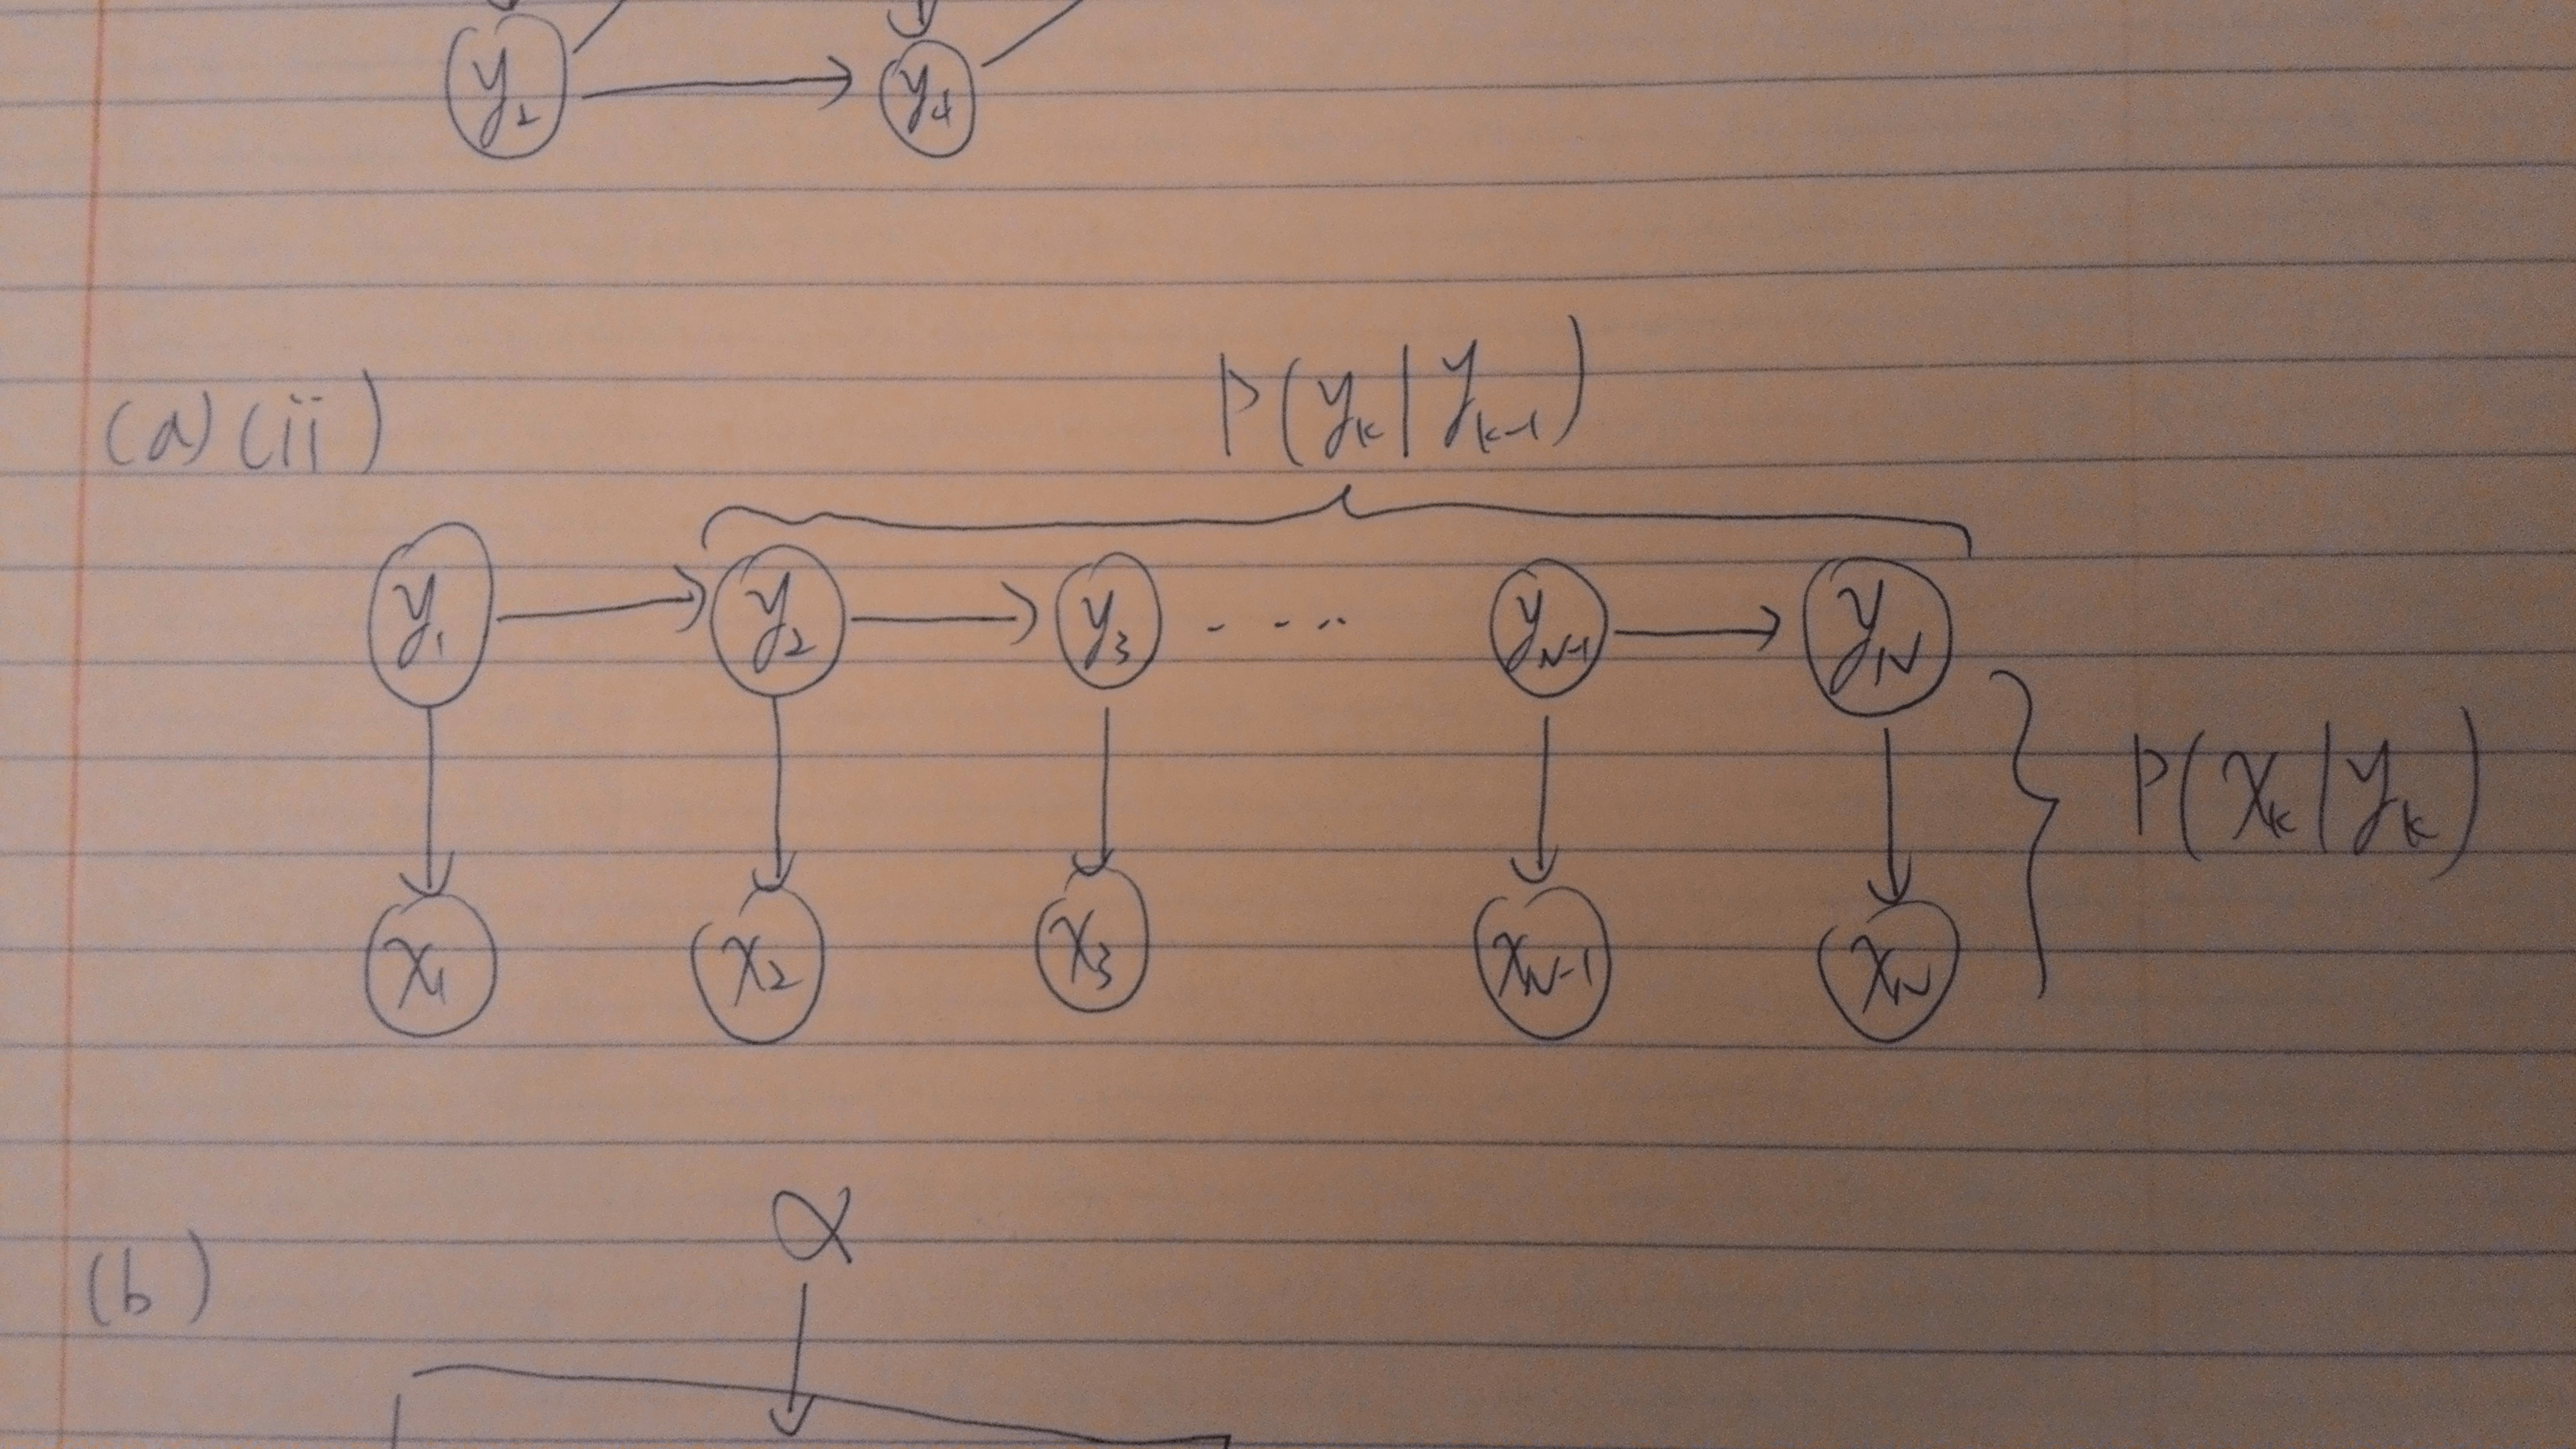 y₂ y₄
(a)(ii) P(yₖ|yₖ₋₁)
y₁ y₂ y₃ - - - .. y_N-1 y_N
P(xₖ|yₖ)
x₁ x₂ x₃ x_N-1 x_N
α
(b)